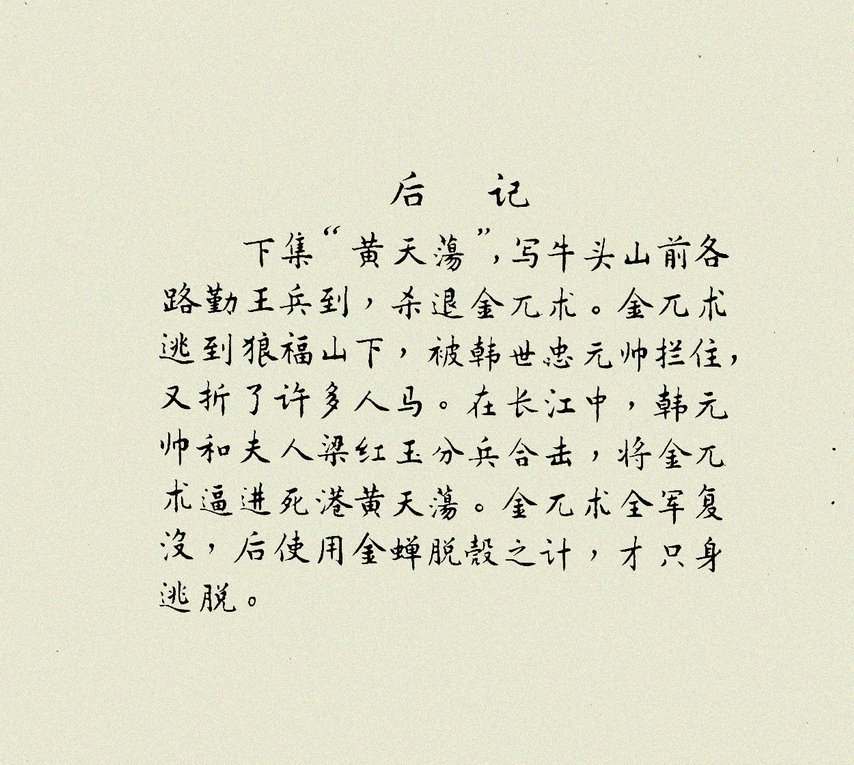 后 记
下集“黄天蕩”,写牛头山前各
路勤王兵到，杀退金兀术。金兀术
逃到狼福山下，被韩世忠元帅拦住,
又折了许多人马。在长江中，韩元
帅和夫人梁红玉分兵合击，将金兀
术逼进死港黄天蕩。金兀术全军复
没，后使用金蝉脱殼之计，才只身
逃脱。